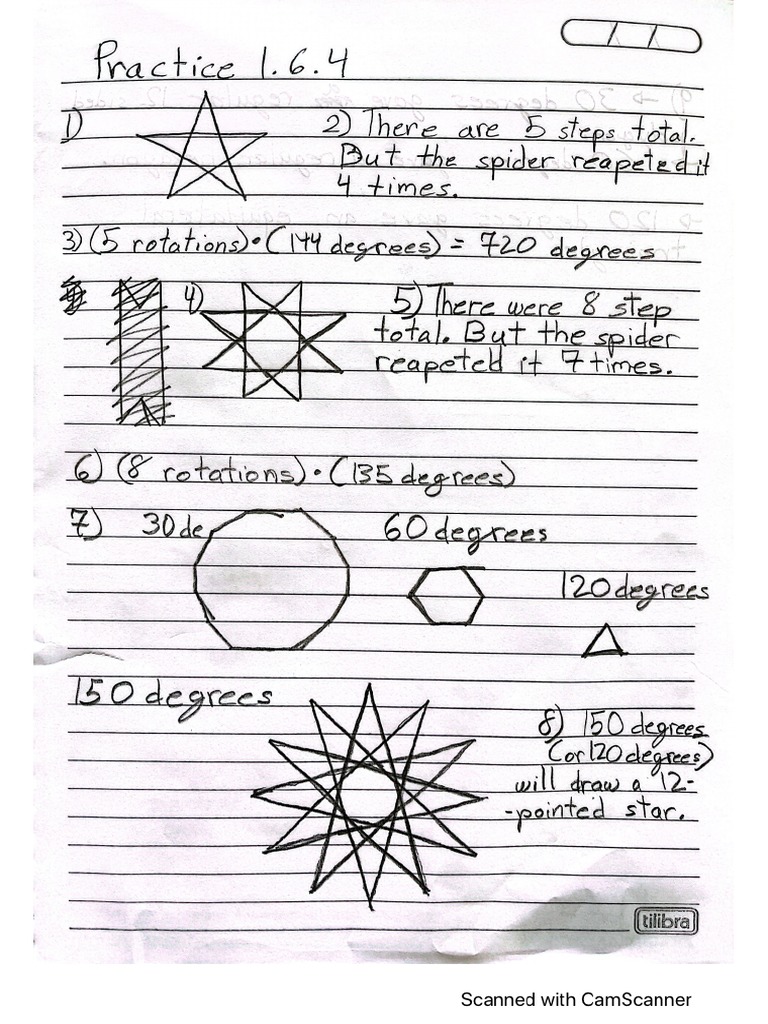 Practice 1.6.4
1)
2) There are 5 steps total.
But the spider reapeted it
4 times.
3) (5 rotations)•(144 degrees) = 720 degrees
4)
5) There were 8 step
total. But the spider
reapeted it 7 times.
6) (8 rotations)•(135 degrees)
7) 30 de
60 degrees
120 degrees
150 degrees
8) 150 degrees
(or 120 degrees)
will draw a 12-
-pointed star.
tilibra
Scanned with CamScanner